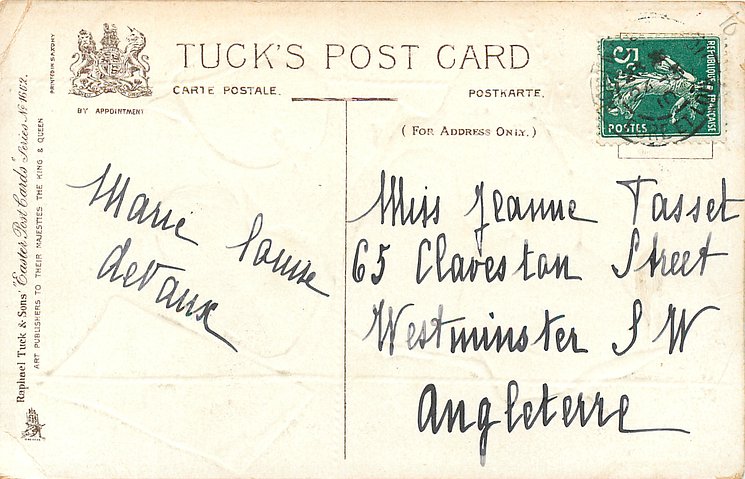 TUCK'S POST CARD
CARTE POSTALE.
POSTKARTE.
BY APPOINTMENT
(FOR ADDRESS ONLY.)
PRINTED IN SAXONY
Raphael Tuck & Sons' "Easter Post Cards" Series No 1662.
ART PUBLISHERS TO THEIR MAJESTIES THE KING & QUEEN
Marie Louise
deVaux
Miss Jeanne Tasset
65 Claveston Street
Westminster S W
Angleterre
REPUBLIQUE FRANÇAISE
5c
POSTES